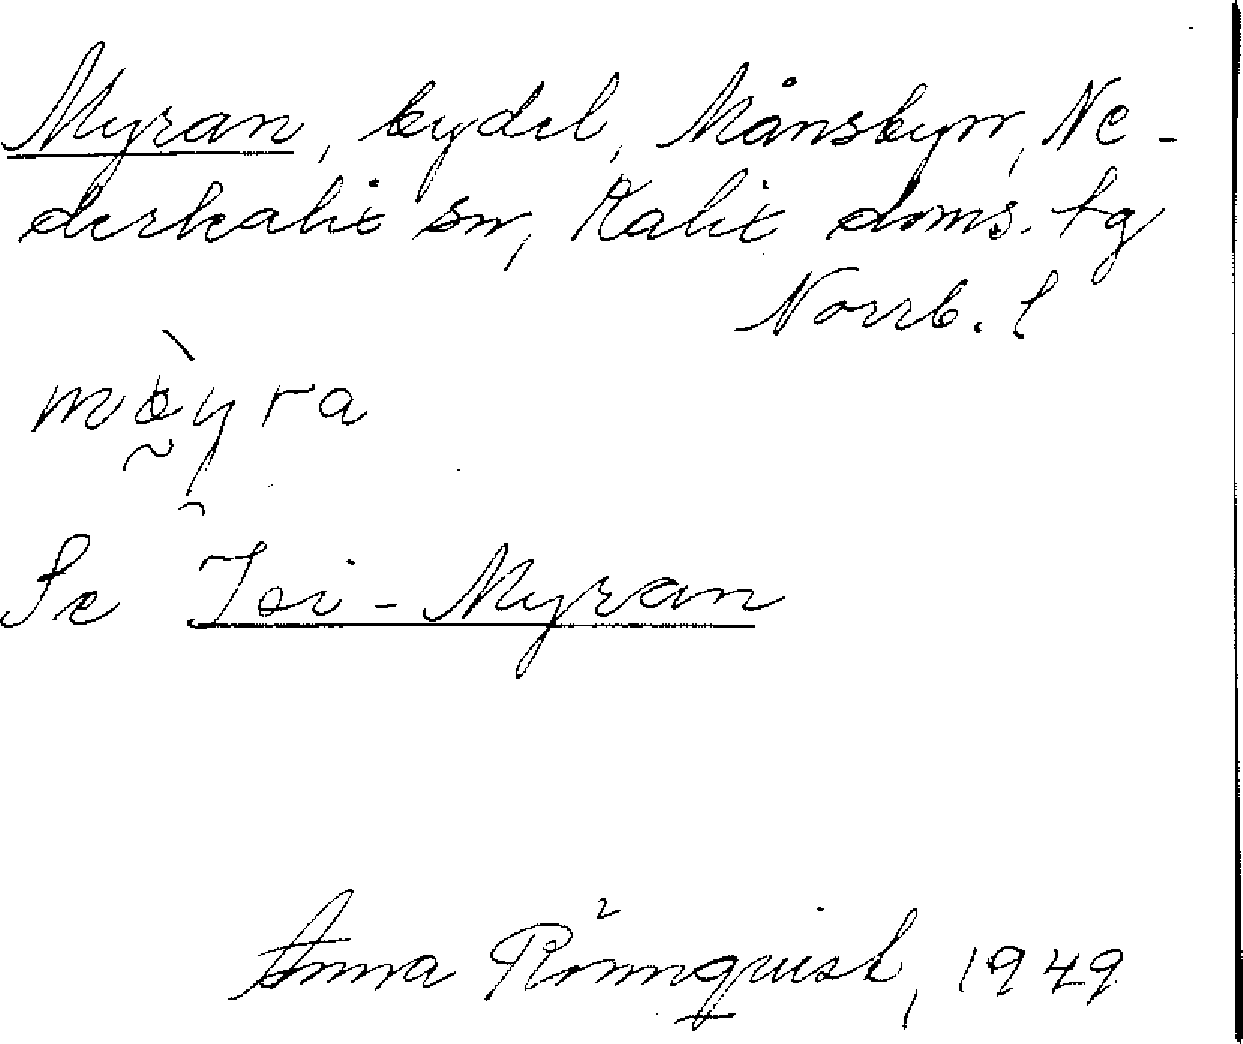 Myran, bydel, Månsbyn, Ne-
derkalix sn, Kalix doms. tg
Norrb. l
møyra
Se Ioi-Myran
Anna Rönnquist, 1949